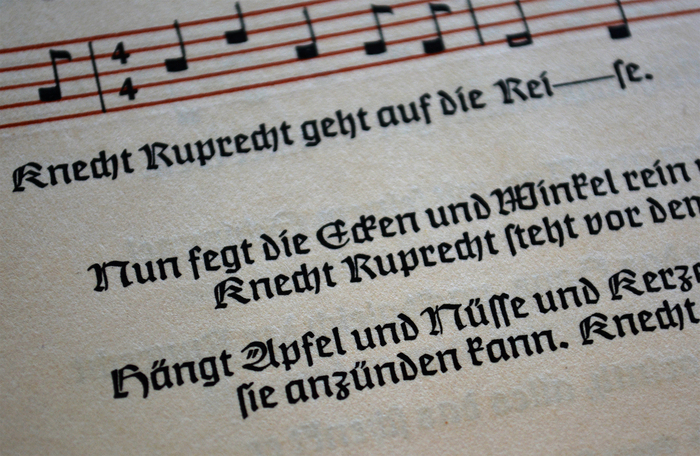 4
4
Knecht Ruprecht geht auf die Rei—ſe.
Nun fegt die Ecken und Winkel rein
Knecht Ruprecht ſteht vor den
Hängt Apfel und Nüſſe und
ſie anzünden kann. Knecht